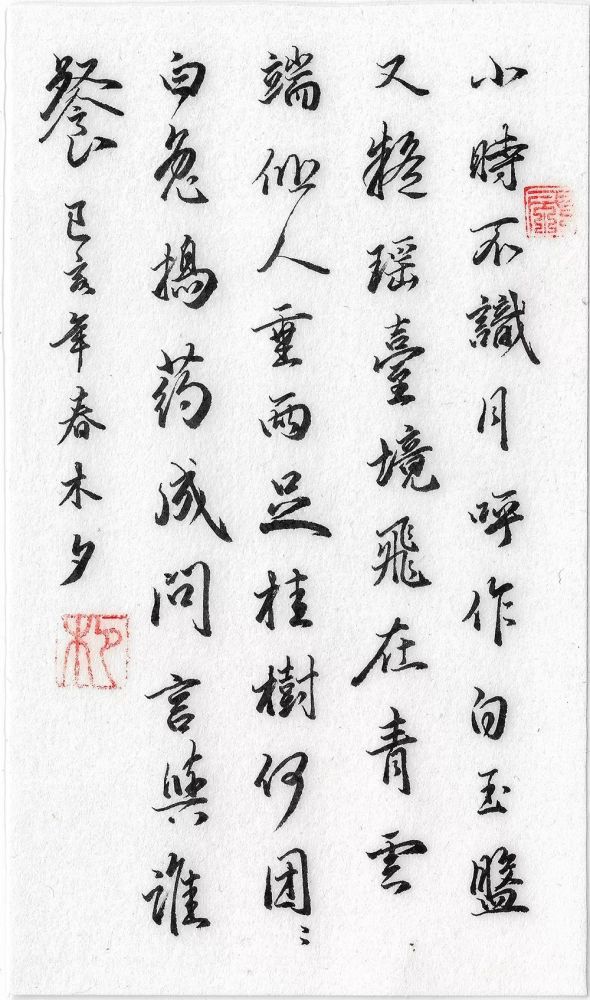 小時不識月呼作白玉盤
又疑瑶臺境飛在青雲
端仙人垂兩足桂樹何團〻
白兔搗药成问言與誰
餐 己亥年春木夕